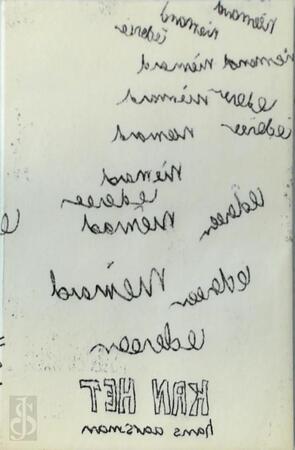 niemand
niemand
iedere
niemand niemand
ieder niemand
iedereen niemand
niemand
iedereen
iedereen niemand
iedereen niemand
iedereen
KAN HET
hans aarsman